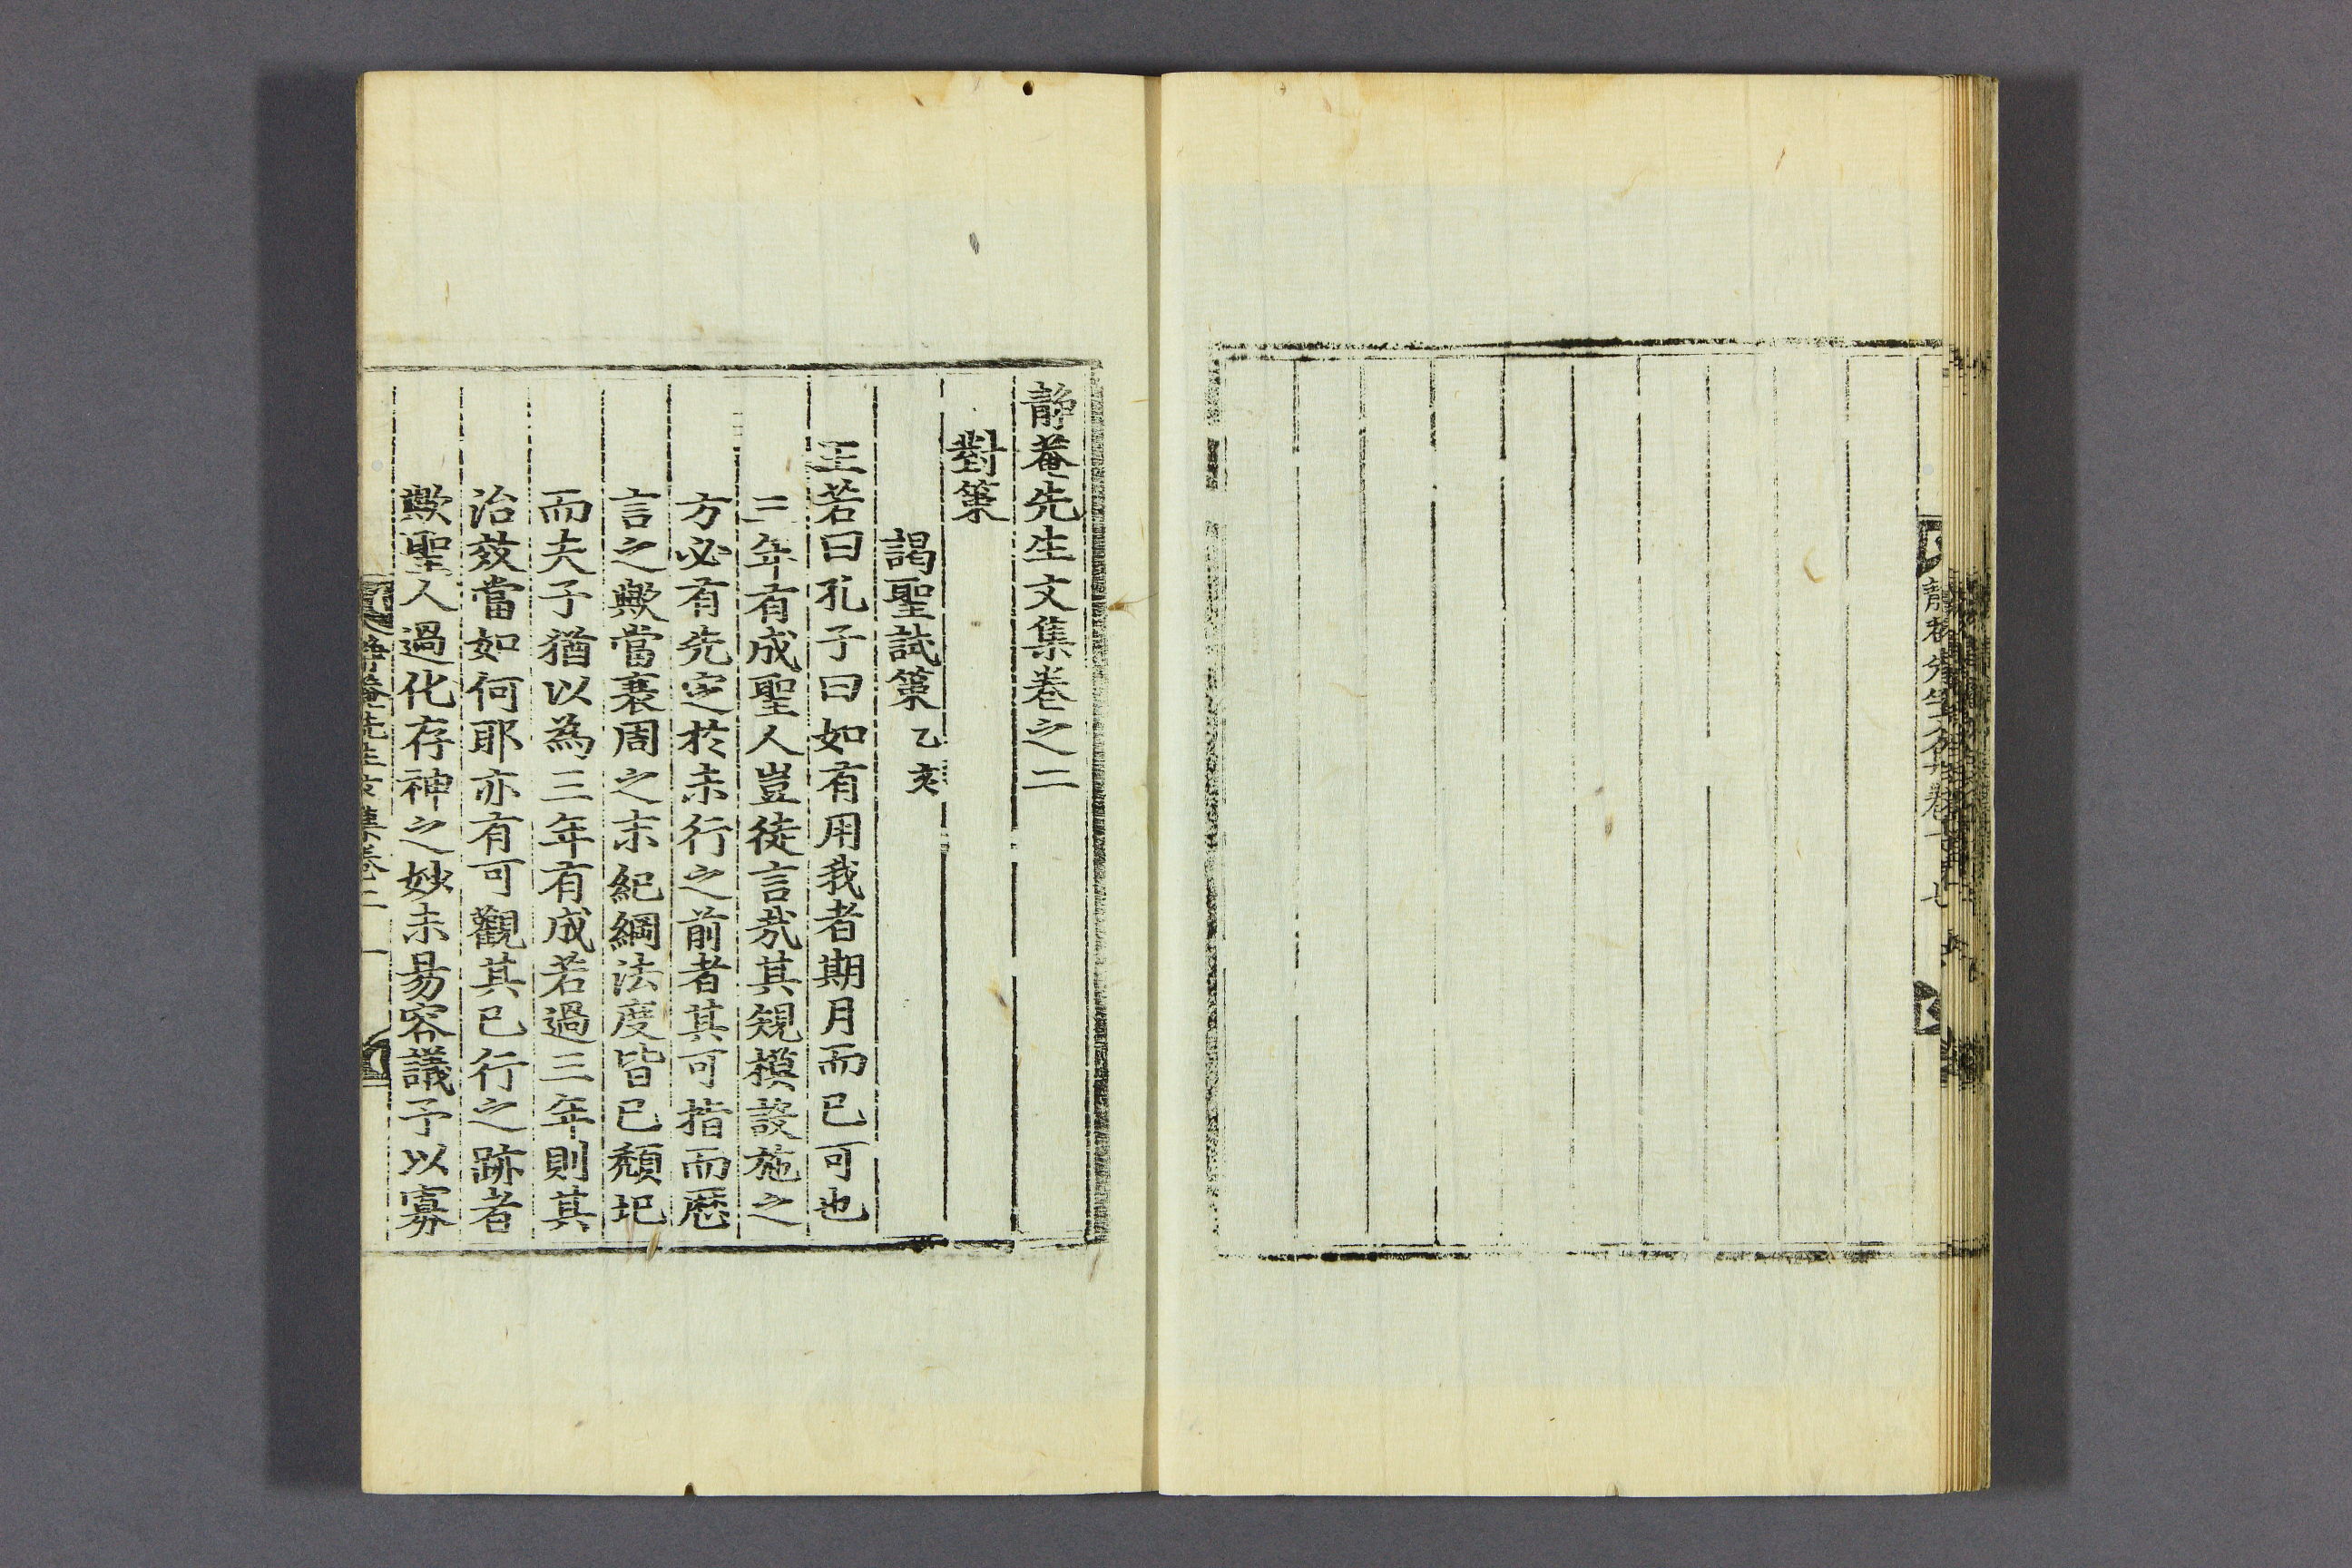 靜菴先生文集卷之二
對策
謁聖試策 乙亥
王若曰孔子曰如有用我者期月而已可也
三年有成聖人豈徒言哉其規模設施之
方必有先定於未行之前者其可指而歷
言之歟當衰周之末紀綱法度皆已頹圮
而夫子猶以爲三年有成若過三年則其
治效當如何耶亦有可觀其已行之跡者
歟聖人過化存神之妙未易容議予以寡
靜菴先生文集卷二 一